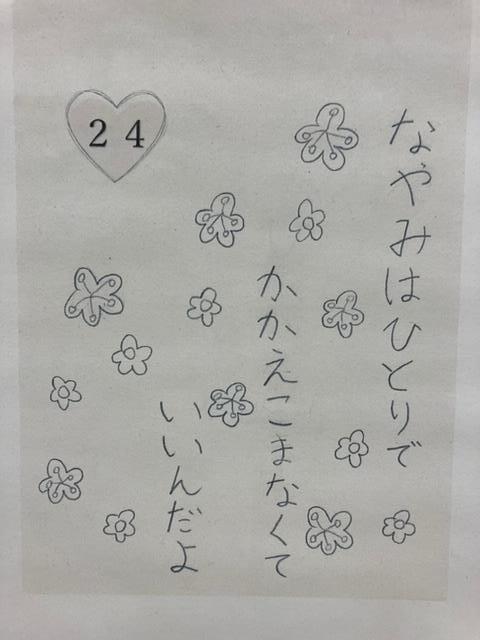 24
なやみはひとりで
かかえこまなくて
いいんだよ